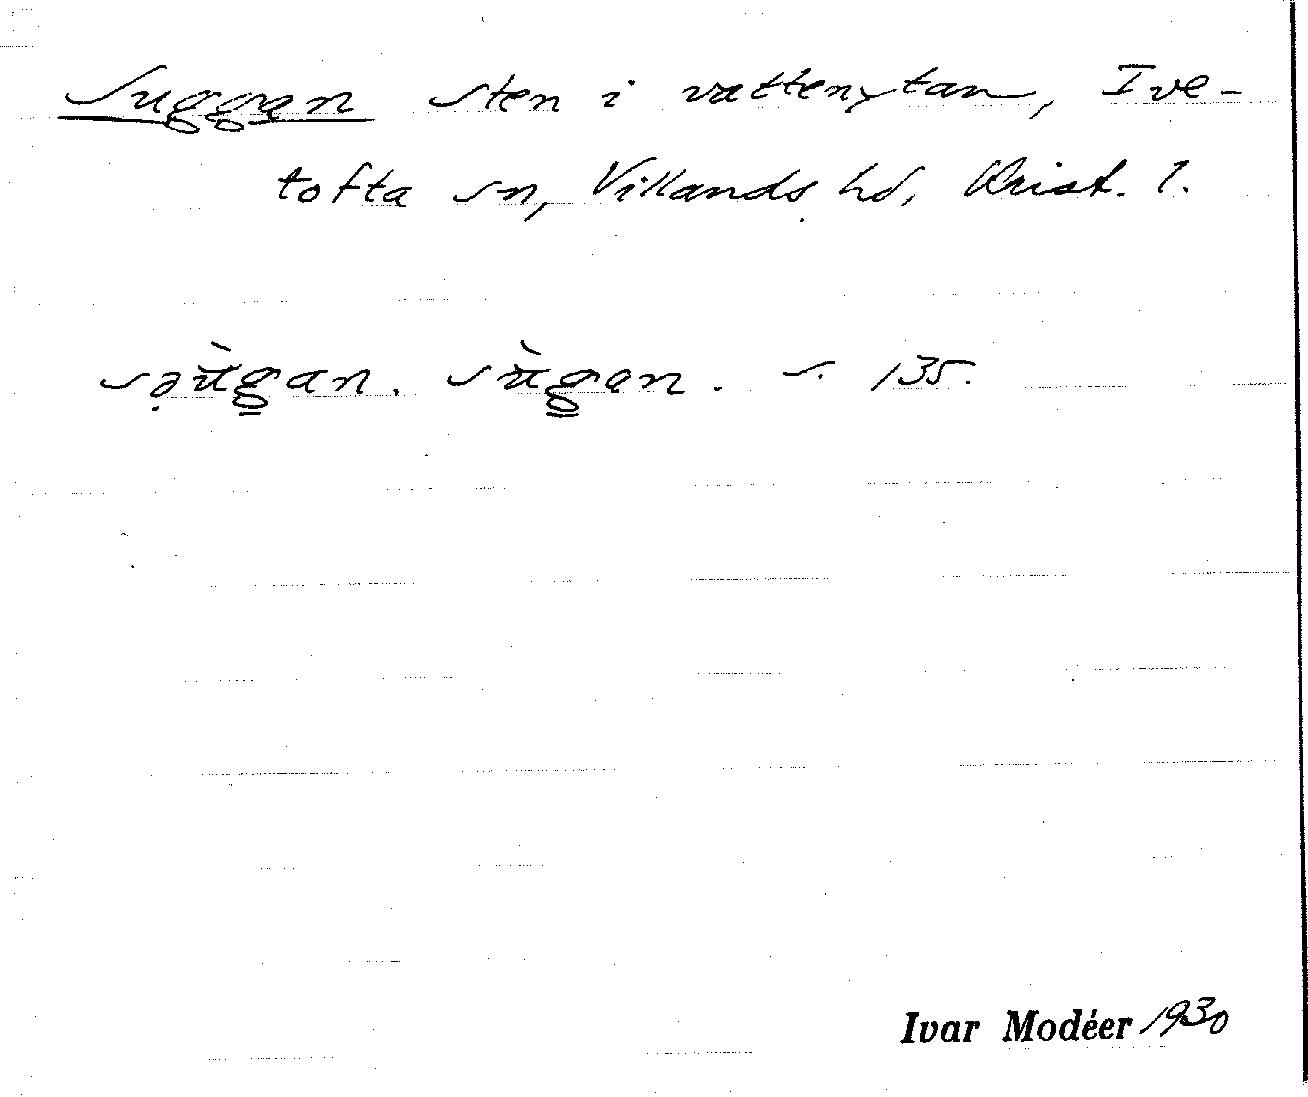 Suggan sten i vattenytan, Ive-
tofta sn, Villands hd, Krist. l.
sə̣ùg̳an. sùg̳an. s. 135.
Ivar Modéer 1930